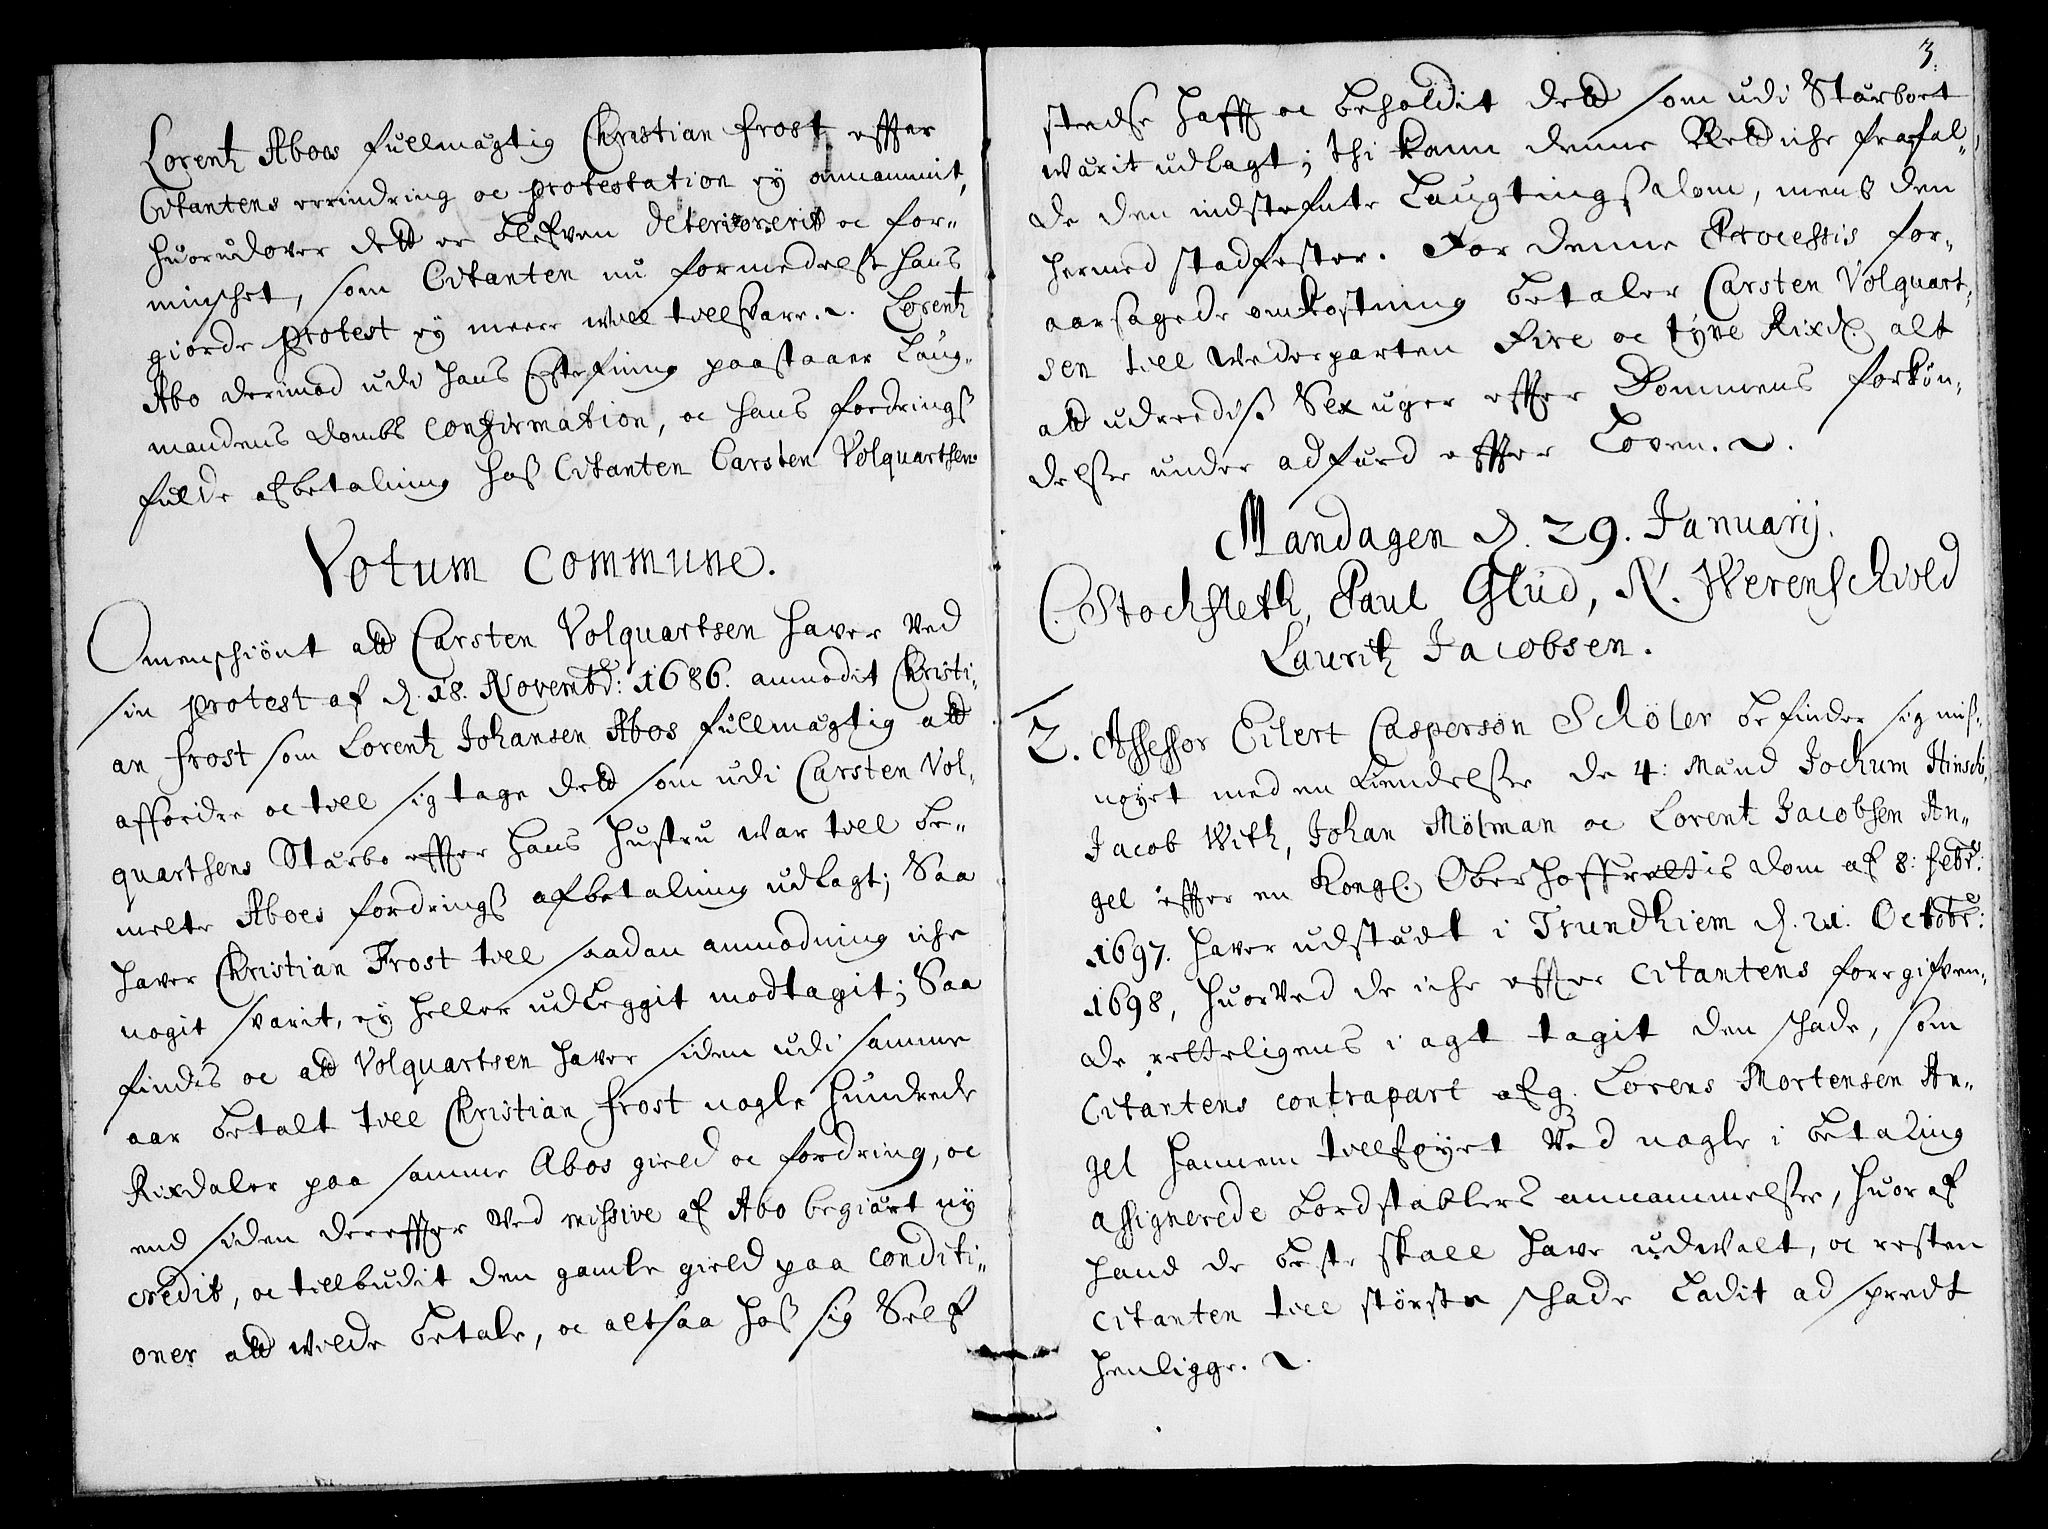 Lorentz Aboes fullmægtig Christian Frost effter
Citantens errindring oc protestation ey annammit,
huorudover dett er blefven deteriorerit oc for-
minschet, som Citanten nu formedelst hans
giorde protest ey meere will tillsvare. Lorentz
Abo derimod udi hans Stefning paastaaer Laug-
mandens dombs confirmation, oc hans fordringß
fulde afbetaling hoß Citanten Carsten Volquartsen.
Votum commune.
Omenschiønt att Carsten Volquartsen haver ved
sin protest af d. 18. Novembr: 1686. anmodit Christi-
an Frost som Lorentz Johansen Abos fullmægtig att
affordre oc till sig tage dett som udi Carsten Vol-
quartsens Stærbo effter hans hustru war till be-
melte Aboes fordringß afbetaling udlagt; Saa
haver Christian Frost till saadan anmodning iche
nogit svarit, ey heller udleggit modtagit; Saa
findes oc att Volquartsen haver siden udi samme
aar betalt till Christian Frost nogle hundrede
Rixdaler paa samme Abos gield oc fordring, oc
end siden dereffter ved missive af Abo begiært ny
credit, oc tillbudit den gamle gield paa conditi-
oner att wilde betale, oc altsaa hoß sig Self
3.
stedse hafft oc beholdit dett som udi Stærboet
warit udlagt; thi kann denne Rett iche frafal-
de den indstefnte Laugtingsdom, mens den
hermed stadfester. For denne Processis for-
aarsagede omkostning betaler Carsten Volquart-
sen till Vederparten Fire oc tyve Rixd. alt
att udredis Sex uger effter Dommens forkyn-
delse under adfærd effter Loven.
Mandagen d. 29. Januarij.
C. Stochfleth, Paul Glud, N. Werenschiold
Lauritz Jacobsen.
2. Assessor Eilert Casperson Schöler befinder sig miß-
nøyet med en kiendelse de 4: Mænd Jochum Hinsch,
Jacob With, Johan Mölman oc Lorent Jacobsen An-
gel effter en Kongl. Oberhoffrettis dom af 8: Febr:
1697. haver udstædt i Trundhiem d. 21. Octobr:
1698, huorved de iche effter citantens foregifven-
de retteligens i agt tagit den schade, som
Citantens contrapart afg. Lorens Mortensen An-
gel hannem tillføyet ved nogle i betaling
assignerede bordstablers annammelse, huor af
hand de beste skall have udvalt, oc resten
citanten till störste schade ladit ad spredt
henligge.